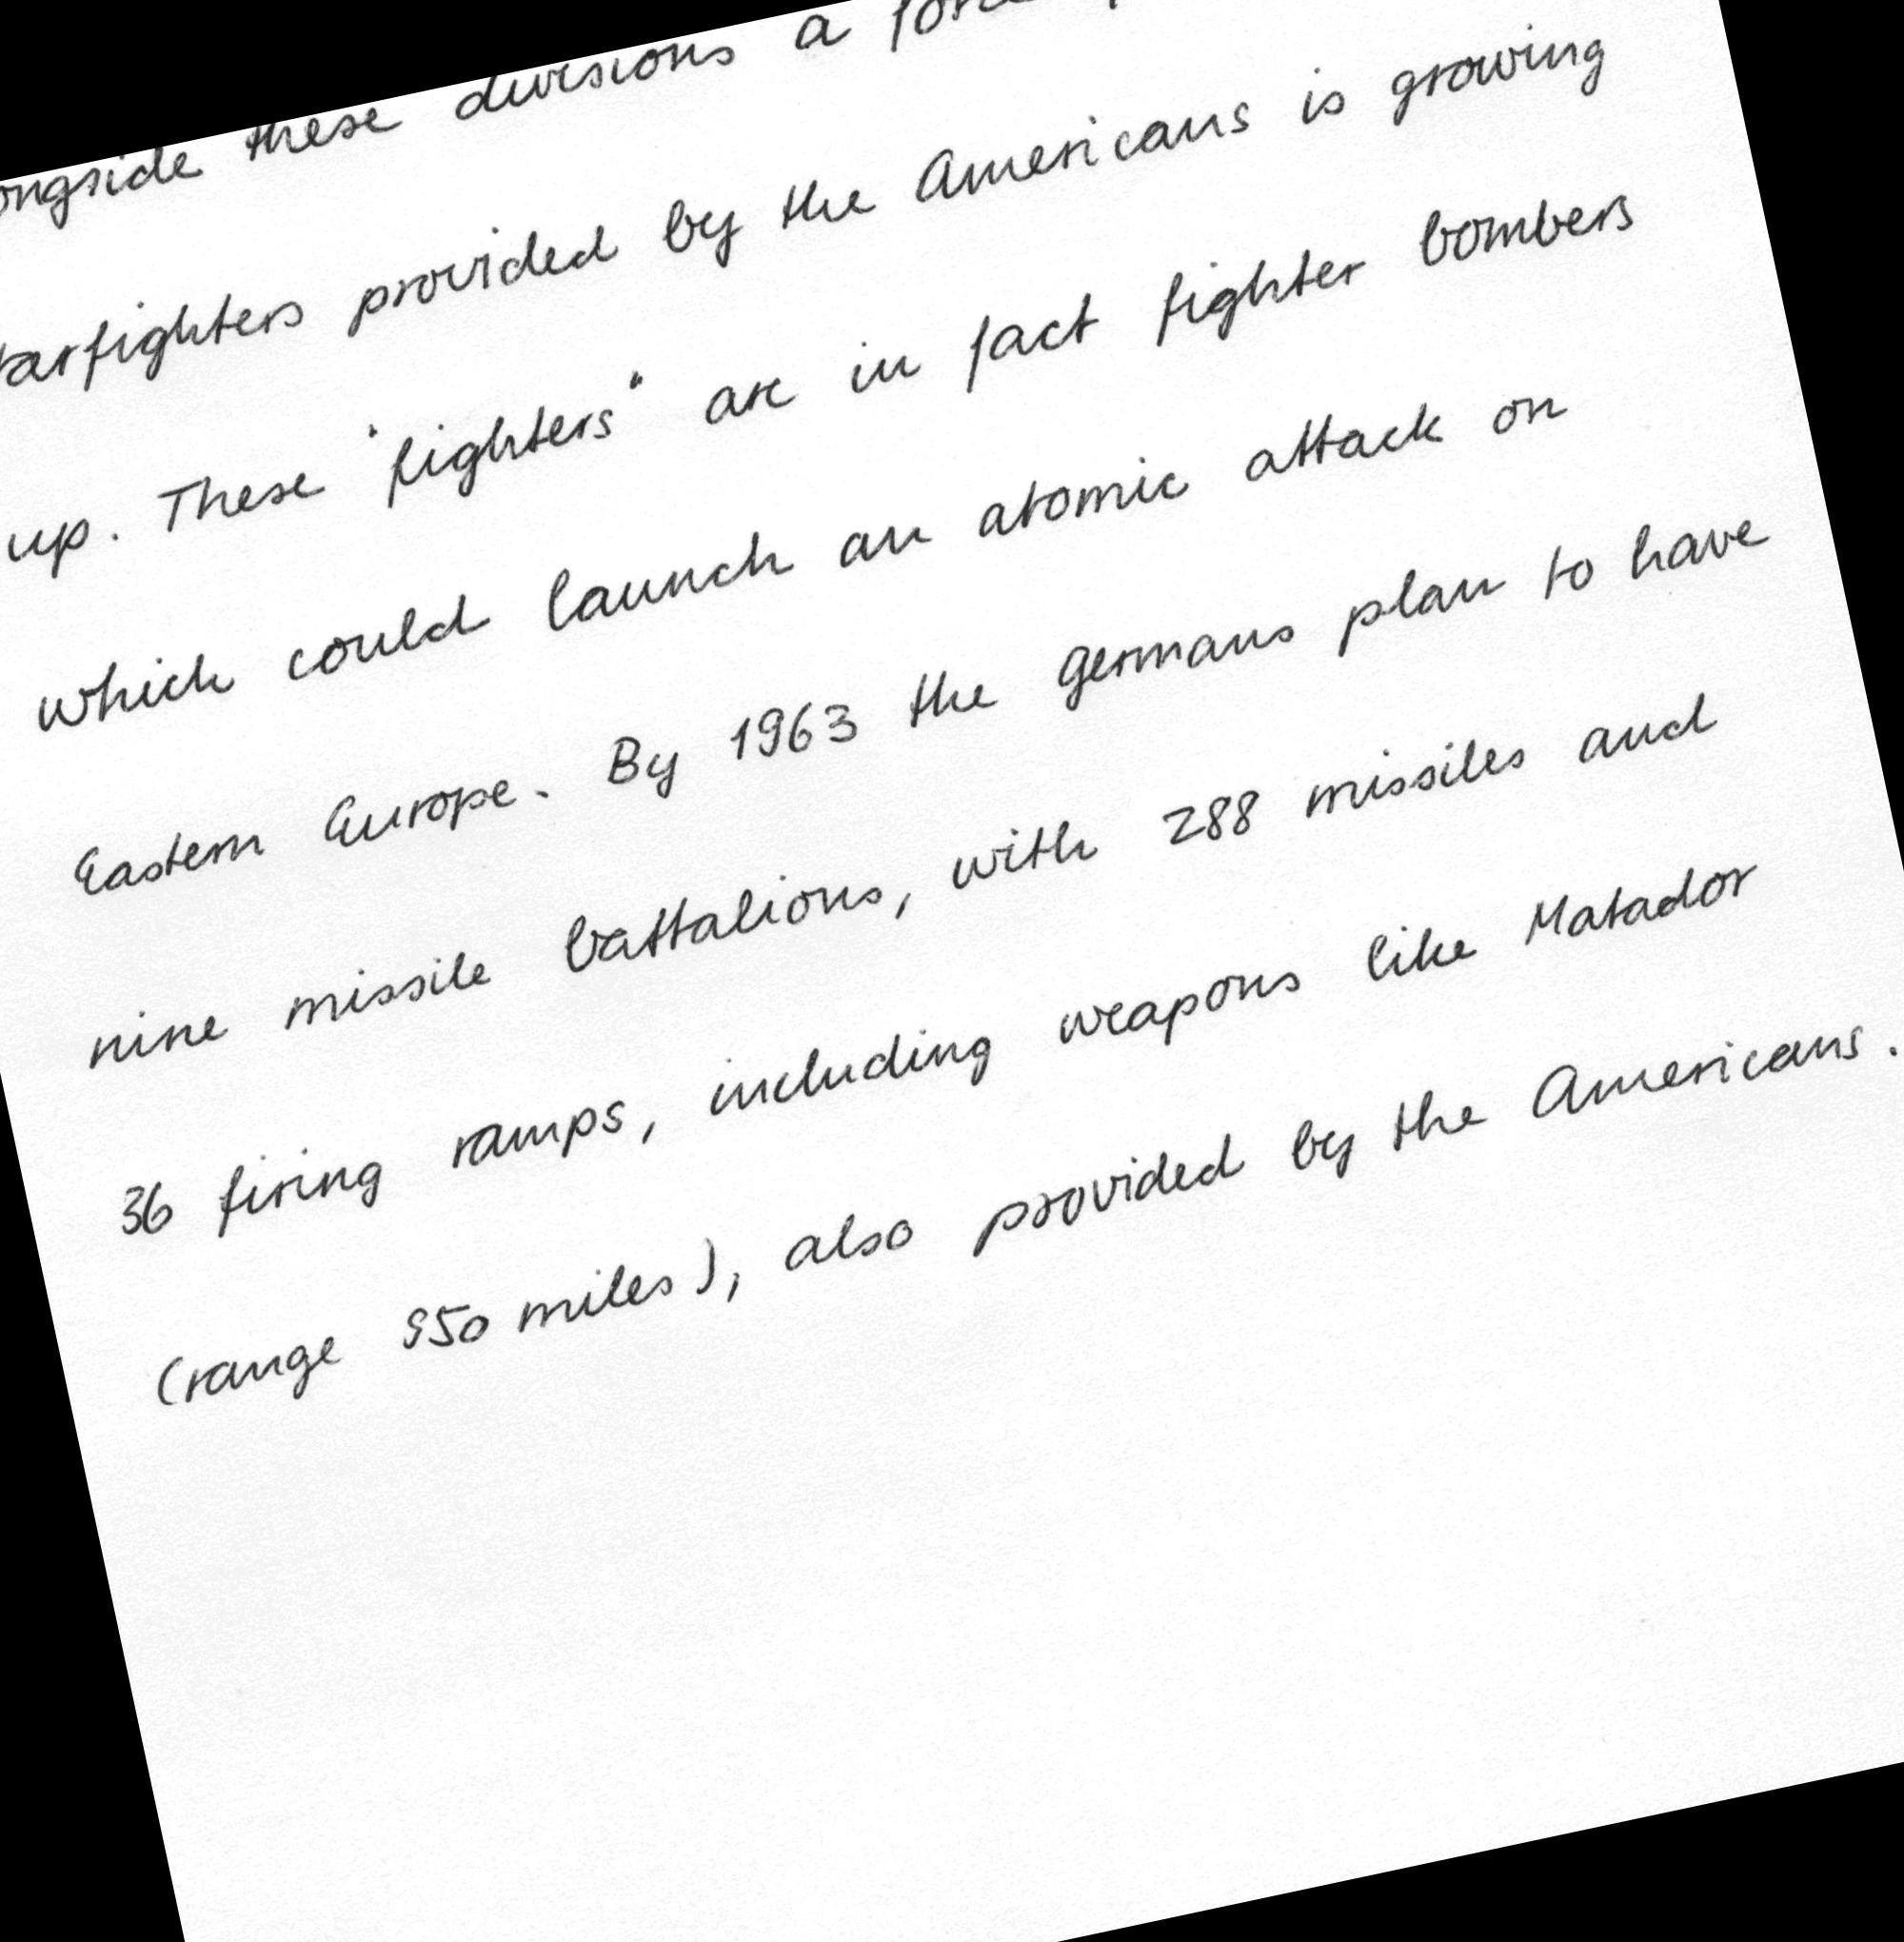 these divisions a
provided by the Americans is growing
up. These "fighters" are in fact fighter bombers
which could launch an atomic attack on
Eastern Europe. By 1963 the Germans plan to have
nine missile battalions, with 288 missiles and
36 firing ramps, including weapons like Matador
(range 950 miles), also provided by the Americans.